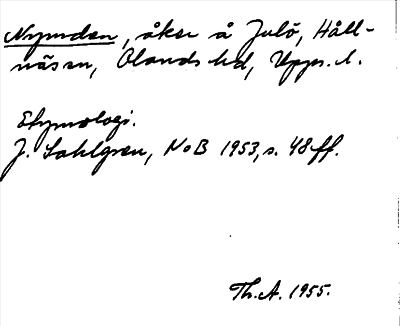 Nymden, åker å Julö, Håll-
näs sn, Olands hd, Upps. l.
Etymologi.
J. Sahlgren, NoB 1953, s. 48 ff.
Th. A. 1955.